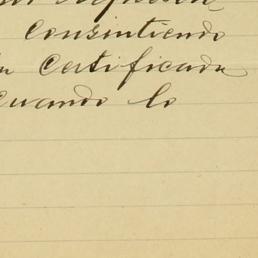 consintiendo
certificada
cuando lo